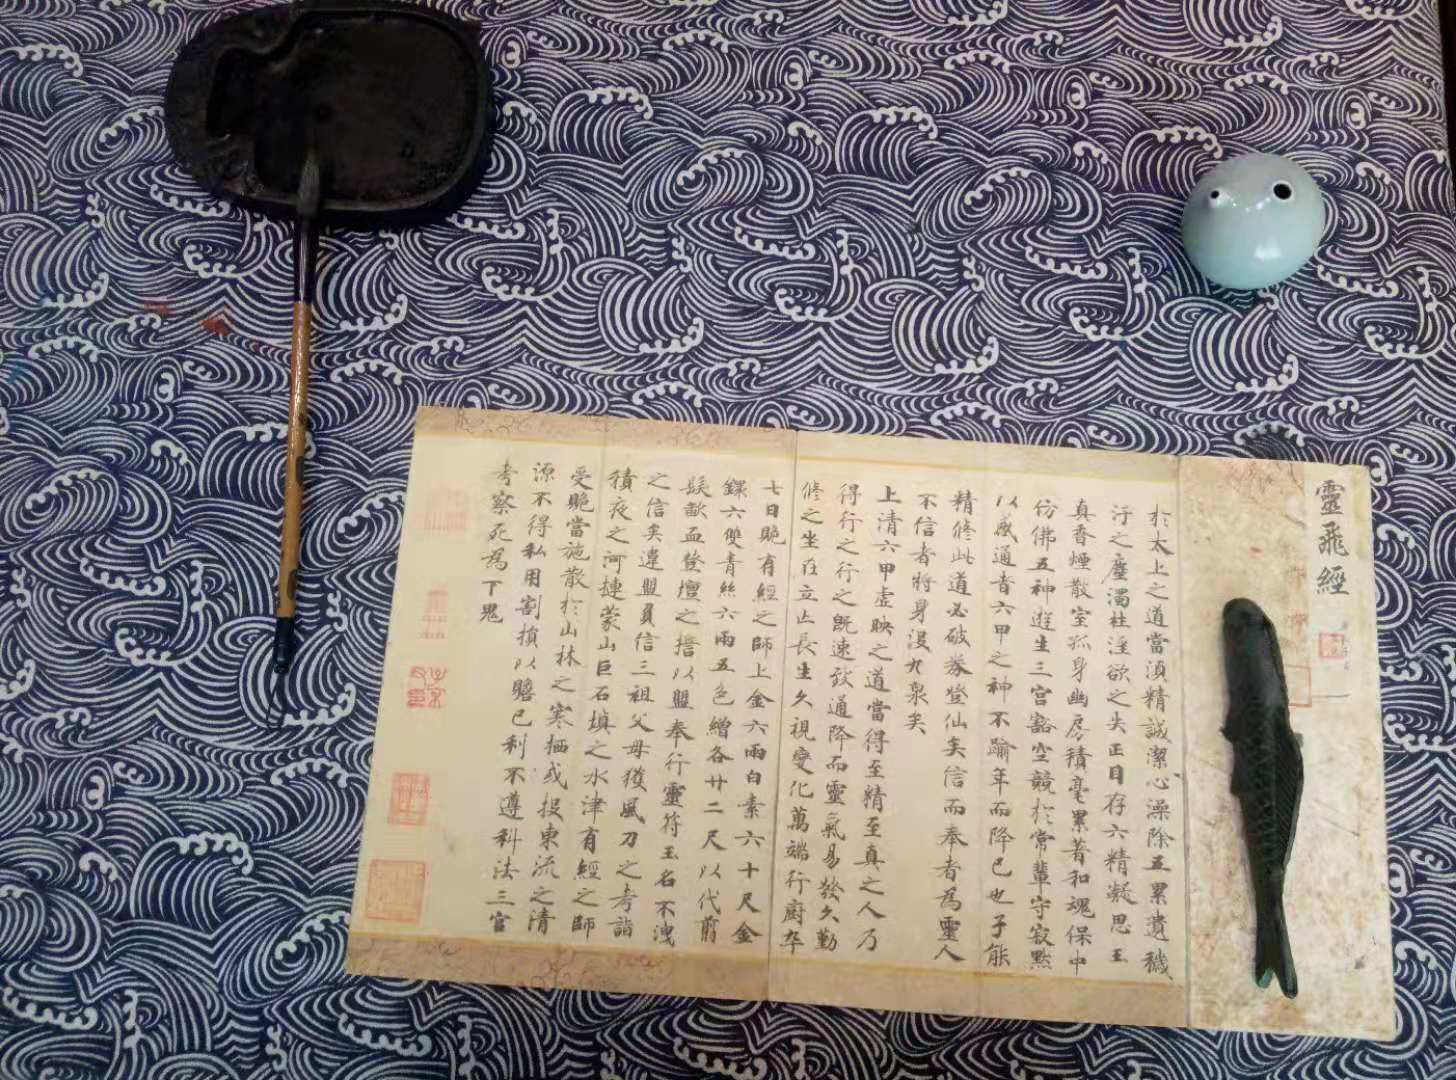 靈飛經
於太上之道當湏精誠潔心澡除五累遺穢
汙之塵濁杜淫欲之失正目存六精凝思玉
真香煙散室孤身幽房積毫累著和魂保中
仿佛五神遊生三宮豁空競於常輩守寂默
以感通者六甲之神不踰年而降已也子能
精修此道必破券登仙矣信而奉者為靈人
不信者將身沒九泉矣
上清六甲虛映之道當得至精至真之人乃
得行之行之既速致通降而靈氣易發久勤
修之坐在立亡長生久視變化萬端行廚卒
七日貺有經之師上金六兩白素六十尺金
鐶六雙青絲六兩五色繒各廿二尺以代翦
髮歃血登壇之擔以盟奉行靈符玉名不洩
之信矣違盟負信三祖父母獲風刀之考詣
積夜之河揵蒙山巨石填之水津有經之師
受貺當施散於山林之寒栖或投東流之清
源不得私用割損以贍己利不遵科法三官
考察死為下鬼